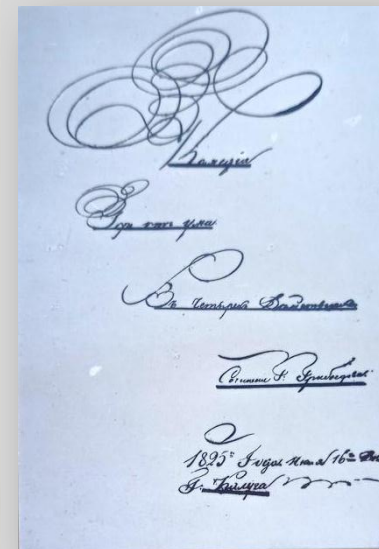 Комедія
Горе отъ ума
Въ Четырехъ Дѣйствіяхъ
Сочиненіе Г. Грибоѣдова
1825го Года Июня 16го
Г. Калуга